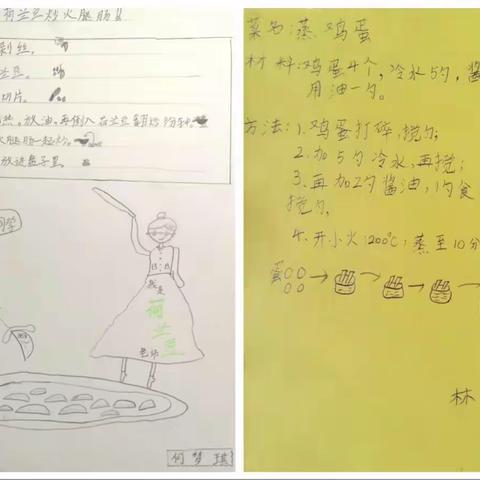 荷兰豆炒火腿肠!!
剥丝。
兰豆。
切片。
热，放油，再倒入荷兰豆翻炒
火腿肠一起炒。
放进盘子里
我是
荷
兰
豆
老师
何梦琪
菜名:蒸鸡蛋
材料:鸡蛋4个，冷水5勺，酱
用油一勺。
方法:1.鸡蛋打碎，搅匀;
2.加5勺冷水，再搅;
3.再加2勺酱油，1勺食
搅匀。
4.开小火:200℃，蒸至10分
蛋
林